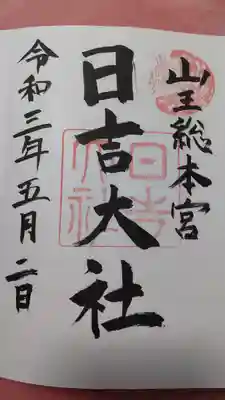 山王総本宮
日吉大社
日吉
大社
令和三年五月二日